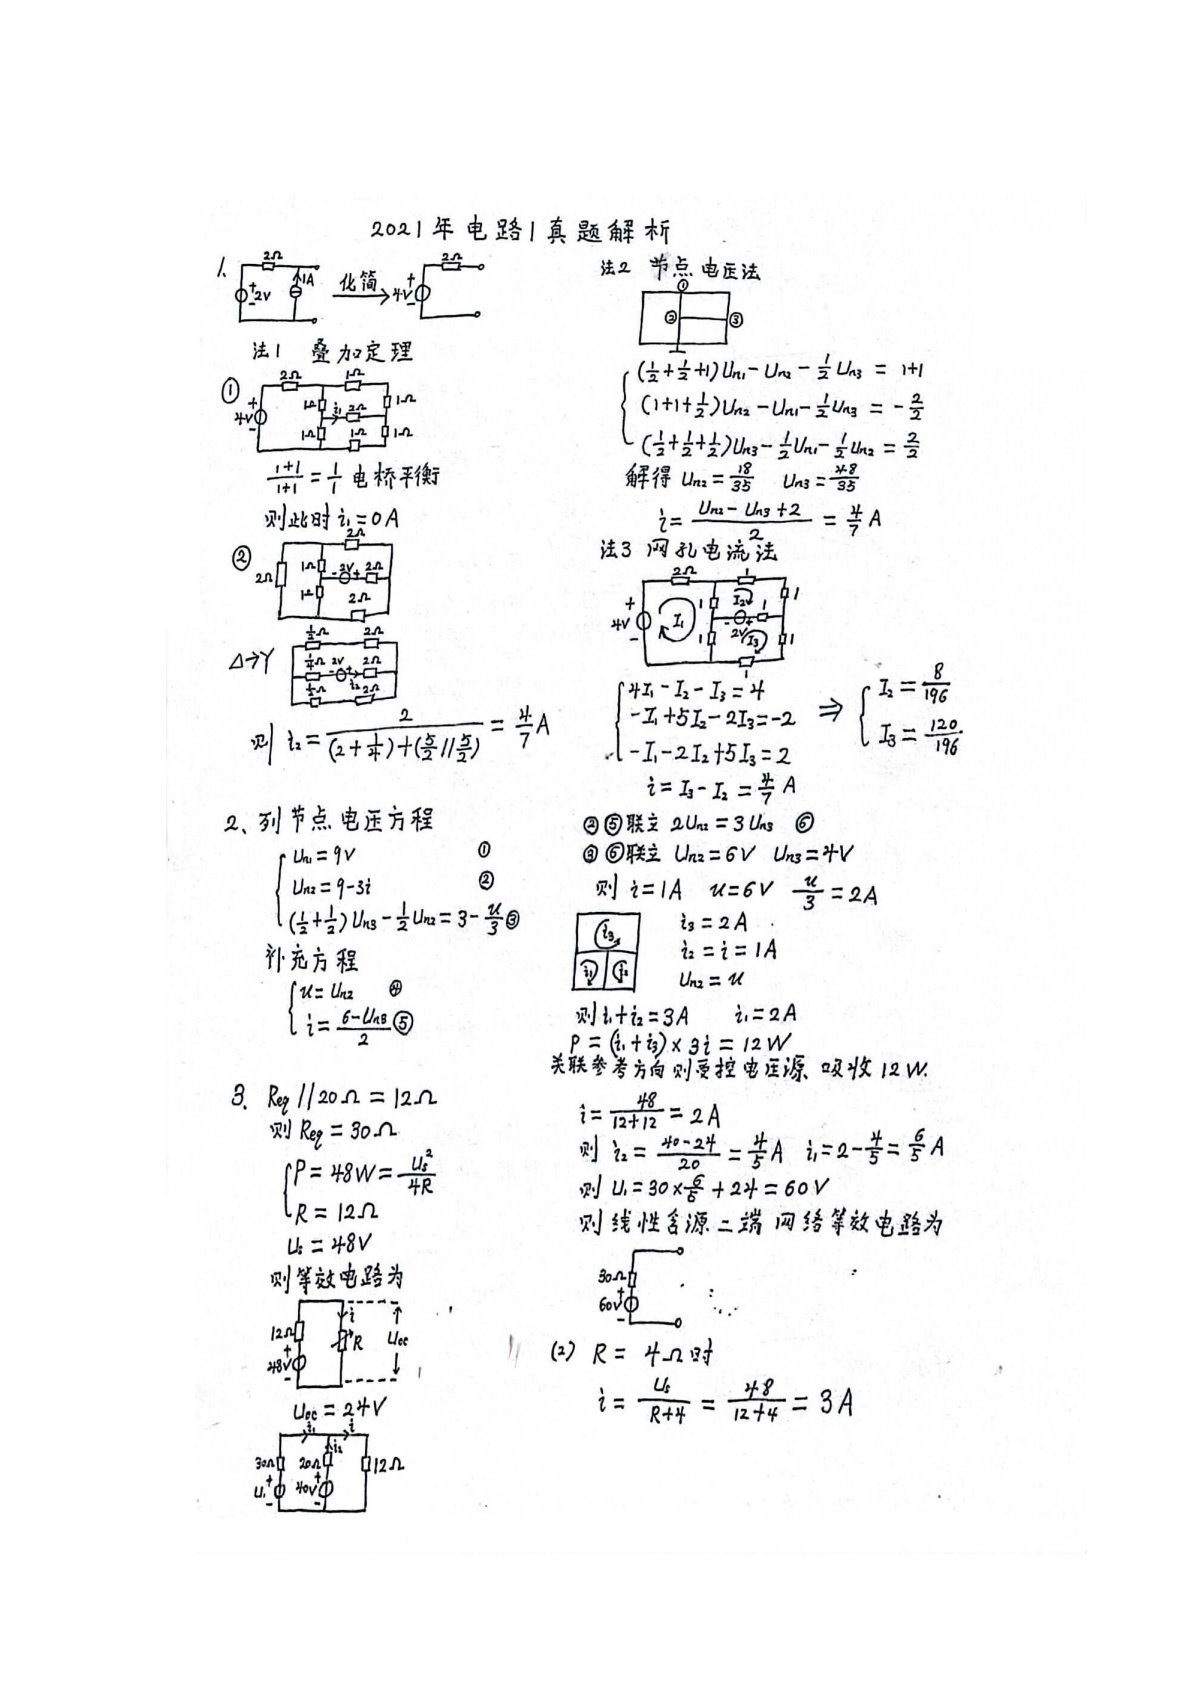 2021年电路1真题解析
1.
2Ω
2V
1A
化简
2Ω
4V
法1 叠加定理
①
2Ω 1Ω
4V 1Ω i₁ 2Ω 1Ω
1Ω 1Ω 1Ω
(1+1)/(1+1) = 1/1 电桥平衡
则此时 i₁=0A
②
2Ω
2Ω 1Ω 2V 2Ω
1Ω 2Ω
Δ→Y
1/2Ω 2Ω
1/4Ω 2V 2Ω
1/2Ω i₂ 2Ω
则 i₂ = 2/((2+1/4)+(5/2//5/2)) = 4/7 A
法2 节点电压法
① ② ③
(1/2+1/2+1)Un1-Un2-1/2Un3 = 1+1
(1+1+1/2)Un2-Un1-1/2Un3 = -2/2
(1/2+1/2+1/2)Un3-1/2Un1-1/2Un2 = 2/2
解得 Un2=18/35 Un3=48/35
i= (Un2-Un3+2)/2 = 4/7 A
法3 网孔电流法
2Ω 1
4V I₁ 1 I₂ 1 1
1 2V I₃ 1
1
4I₁-I₂-I₃=4
-I₁+5I₂-2I₃=-2
-I₁-2I₂+5I₃=2
⇒ I₂=8/196
I₃=120/196
i=I₃-I₂=4/7 A
2、列节点电压方程
Un1=9V ①
Un2=9-3i ②
(1/2+1/2)Un3-1/2Un2=3-u/3 ③
补充方程
u=Un2 ④
i=(6-Un3)/2 ⑤
②⑤联立 2Un2=3Un3 ⑥
③⑥联立 Un2=6V Un3=4V
则 i=1A u=6V u/3=2A
i₃
i₁ i₂
i₃=2A
i₂=i=1A
Un2=u
则i₁+i₂=3A i₁=2A
P=(i₁+i₃)×3i=12W
关联参考方向则受控电压源 吸收12W.
3、Req//20Ω=12Ω
则Req=30Ω
P=48W=Us²/4R
R=12Ω
Us=48V
则等效电路为
12Ω
48V
i
R
Uoc
Uoc=24V
i₁ i
30Ω 20Ω i₂ 12Ω
U₁ 40V
i=48/(12+12)=2A
则 i₂=(40-24)/20=4/5A i₁=2-4/5=6/5A
则 U₁=30×6/5+24=60V
则线性含源二端网络等效电路为
30Ω
60V
(2) R=4Ω时
i= Us/(R+4) = 48/(12+4) = 3A